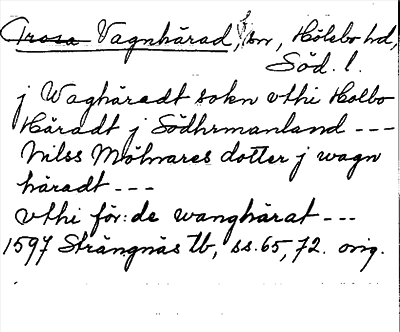 Trosa Vagnhärad, sn, Hölebo hd,
Söd. l.
j Waghäradt sokn vthi Holbo
Häradt j Södhrmanland ---
Nilss Mölnares dotter j wagn
häradt ---
vthi för: de wanghärat ---
1597 Strängnäs tb, ss. 65, 72. orig.